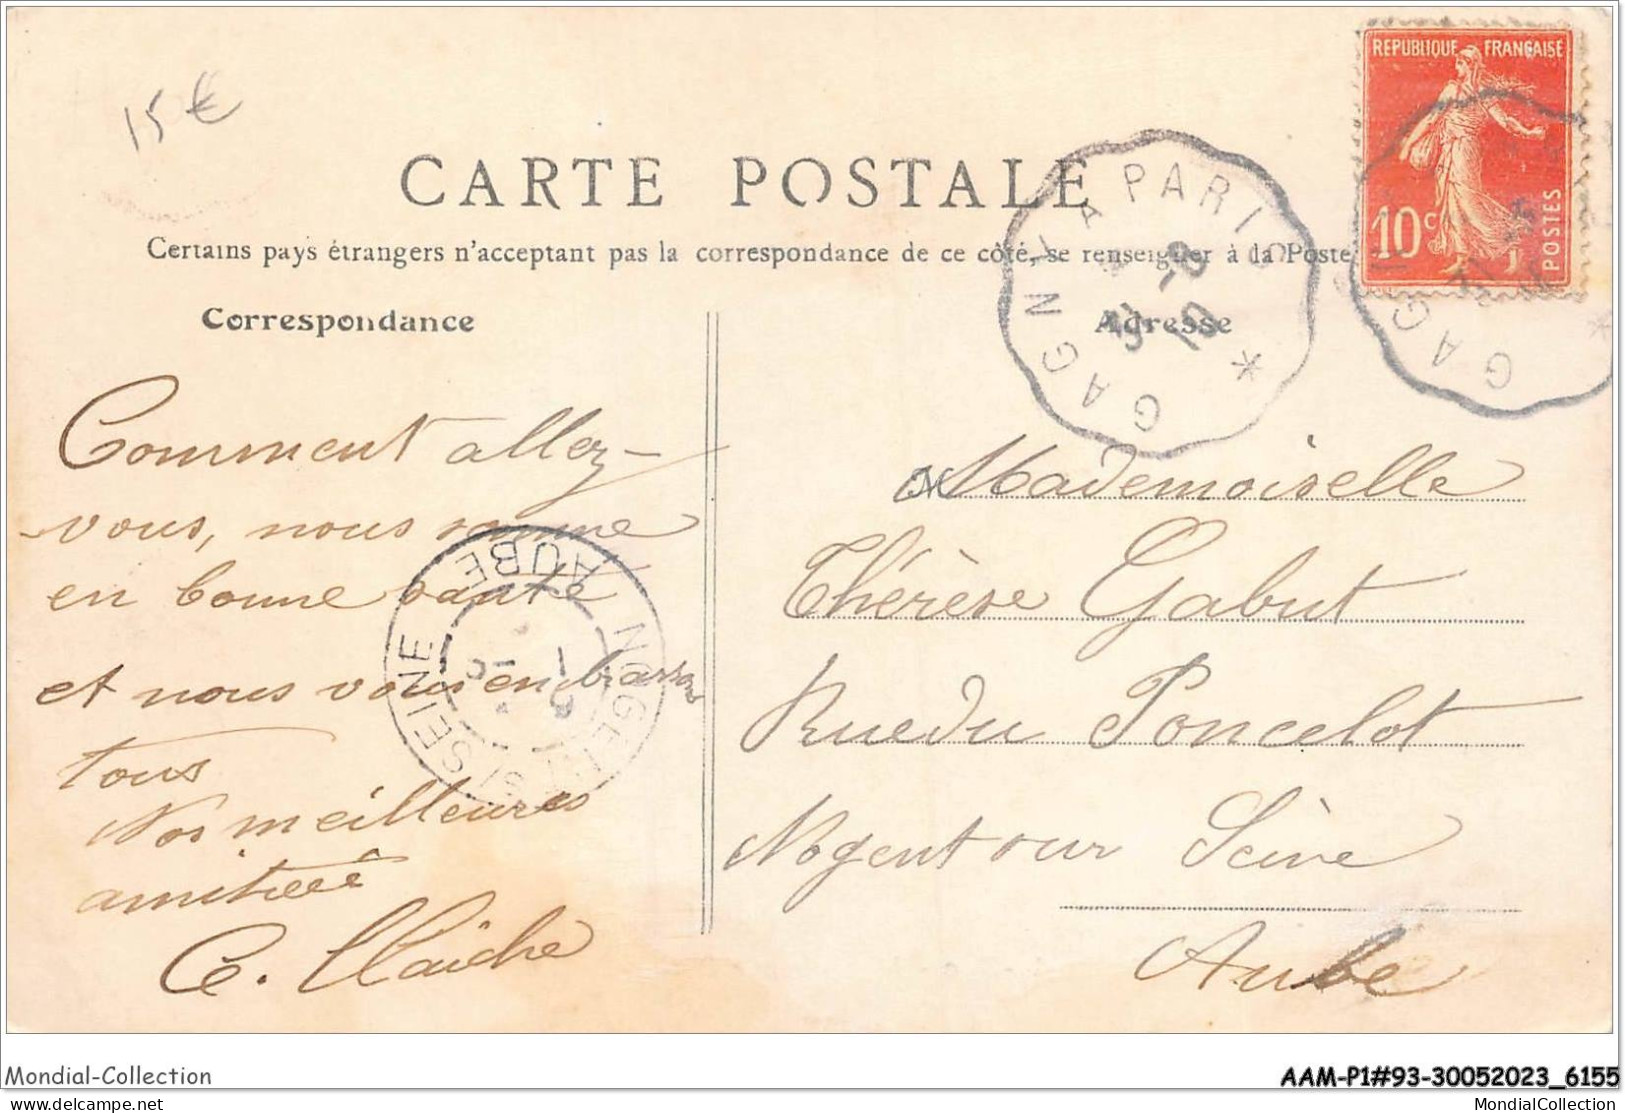 15€
REPUBLIQUE FRANÇAISE
10c
POSTES
CARTE POSTALE
Certains pays étrangers n'acceptant pas la correspondance de ce côté, se renseigner à la Poste
Correspondance
Adresse
GAGNY A PARIS *
31 -8
10
GAGNY
Comment allez-
vous, nous somme
en bonne santé
et nous vous embrasson
tous
Nos meilleures
amitiéé
NOGENT S/ SEINE
AUBE
1 -9
10
Mademoiselle
Thérèse Gabut
Rue du Poncelot
Nogent sur Seine
Aube
Mondial-Collection
AAM-P1#93-30052023_6155
Mondial-collection
MondialCollection